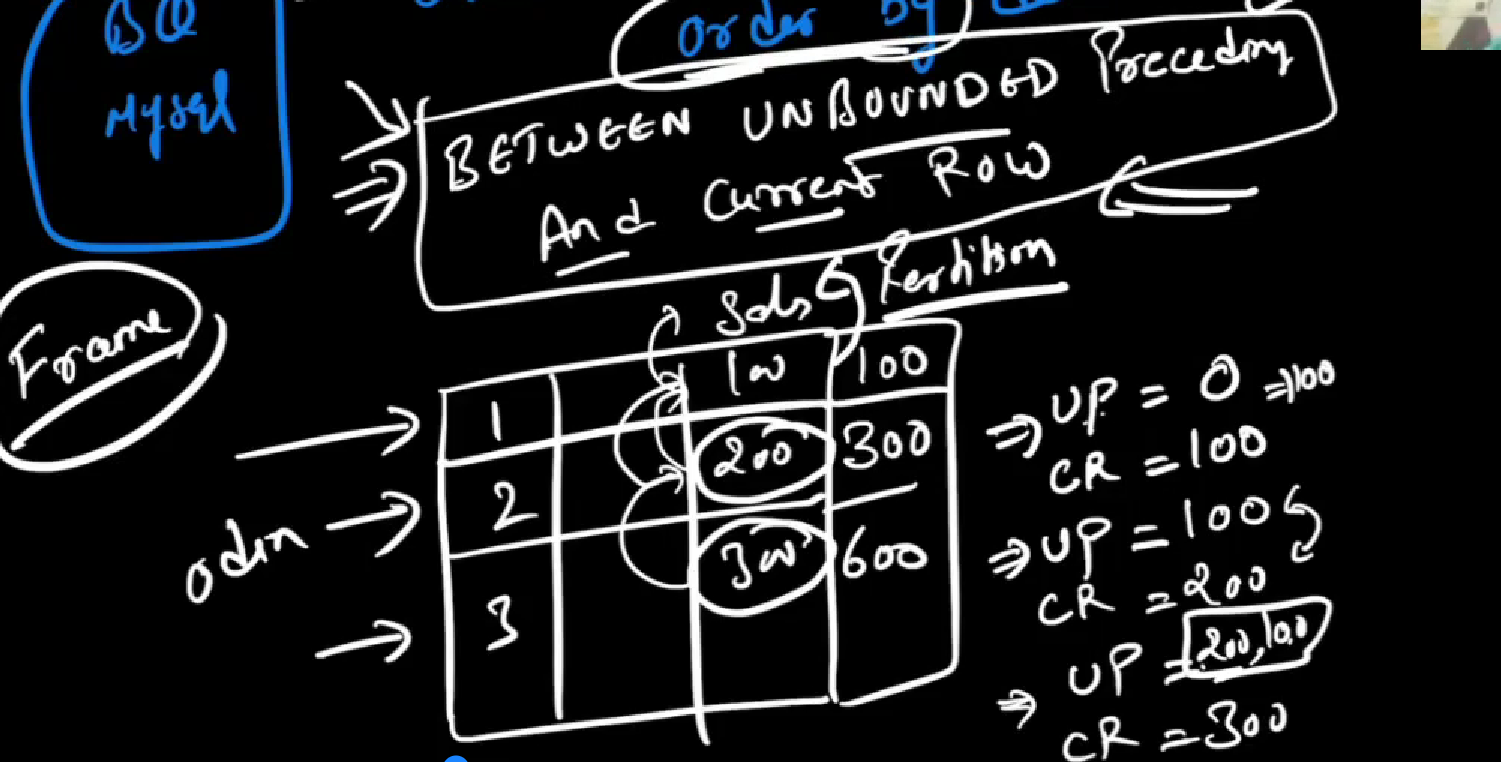 BQ
Mysql
Order by
BETWEEN UNBOUNDED Preceding
And Current Row
Frame
Sales Partition
1 100 100
2 200 300
3 300 600
UP = 0 ⇒100
CR = 100
⇒ UP = 100
CR = 200
⇒ UP = 200, 100
CR = 300